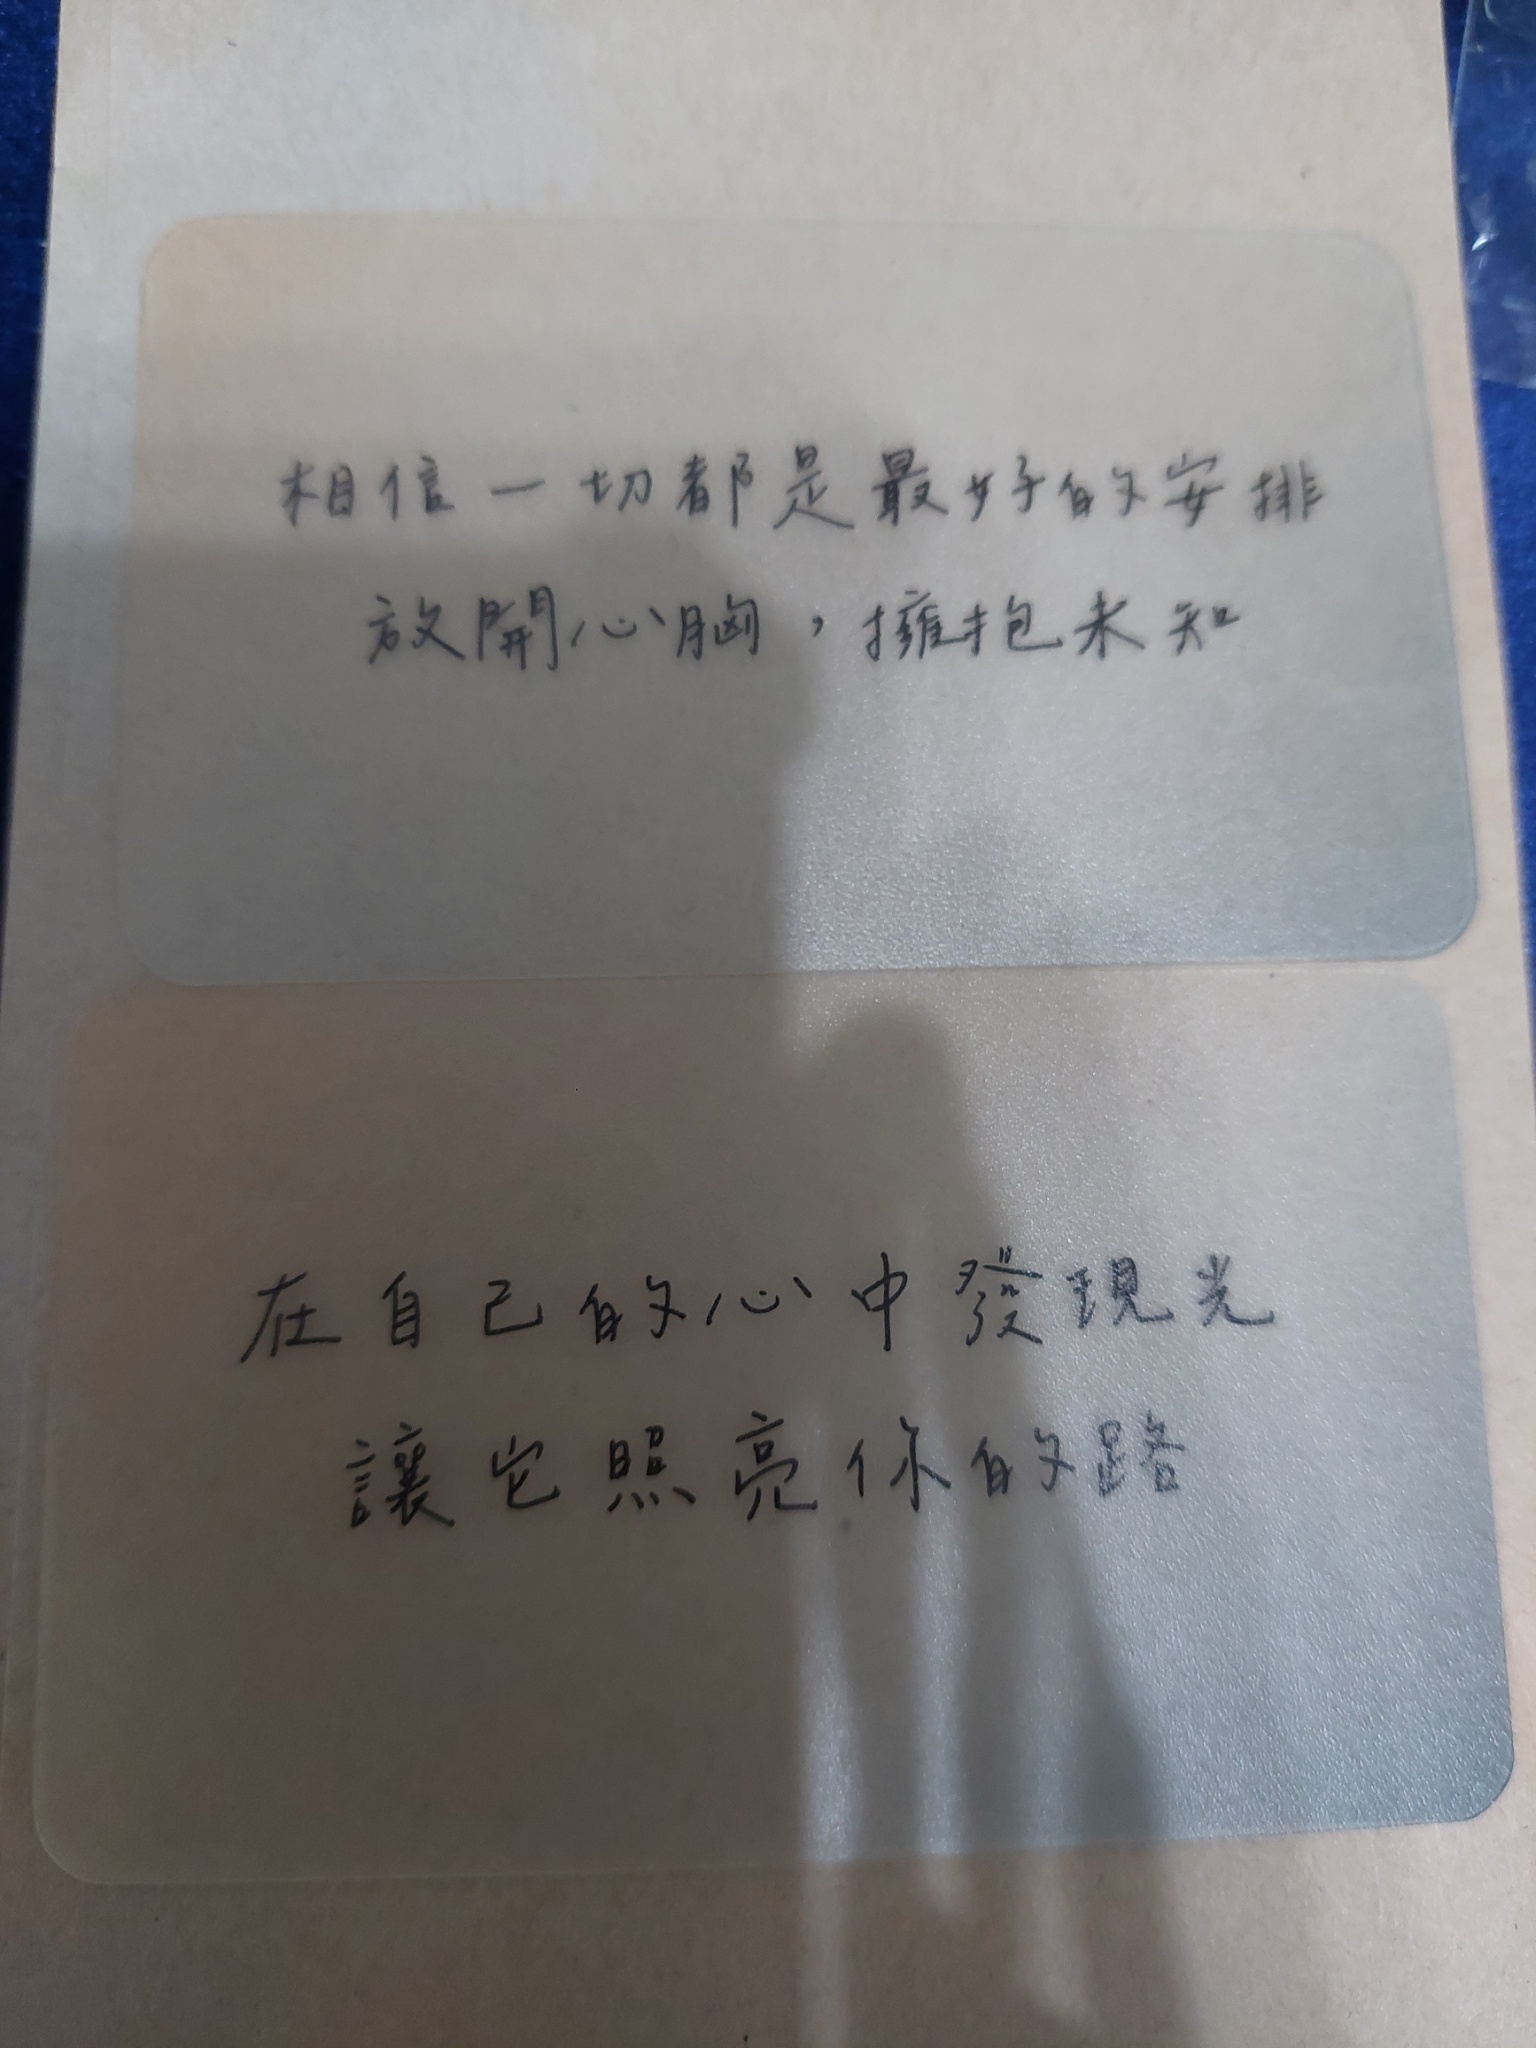 相信一切都是最好的安排
放開心胸，擁抱未知
在自己的心中發現光
讓它照亮你的路